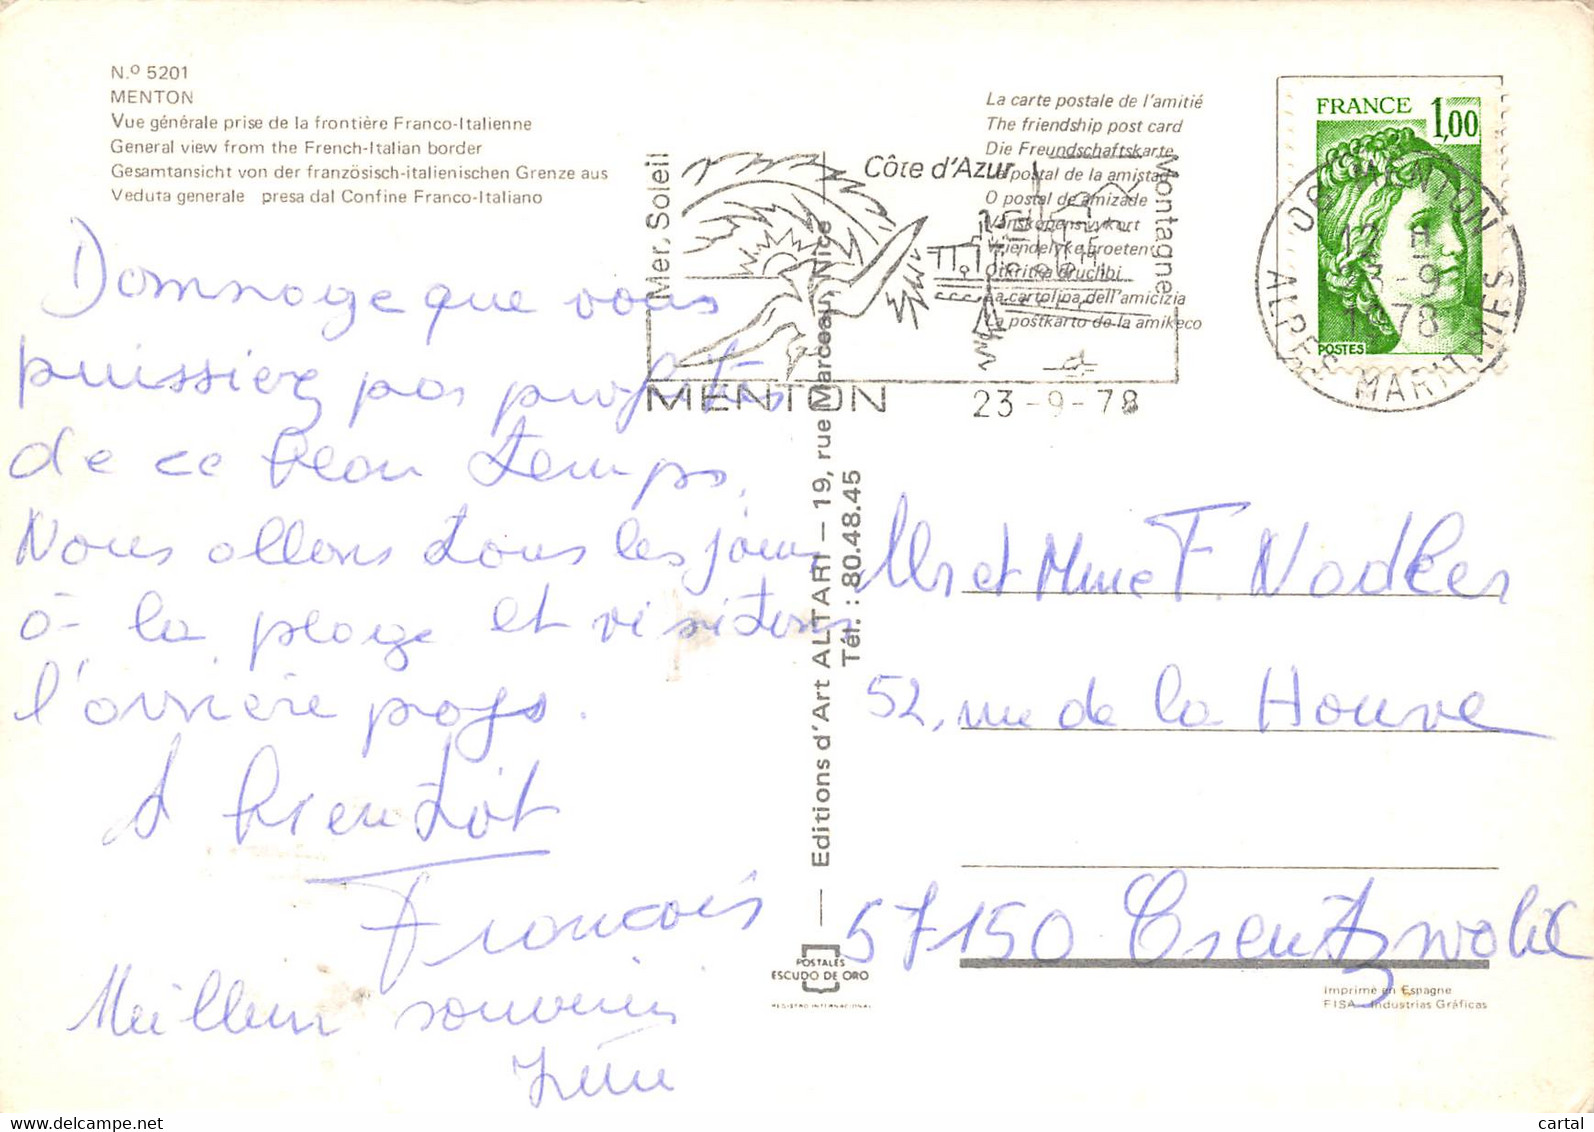 N.º 5201
MENTON
Vue générale prise de la frontière Franco-Italienne
General view from the French-Italian border
Gesamtansicht von der französisch-italienischen Grenze aus
Veduta generale presa dal Confine Franco-Italiano
Dommage que vous
puissiez pas profités
de ce beau temps.
Nous allons tous les jours
à la plage et visitons
l'arrière pays.
A bientôt
François
Meilleur souvenir
La carte postale de l'amitié
The friendship post card
Die Freundschaftskarte
La postal de la amistad
O postal de amizade
Vänskapensvykort
Vriendelyke groeten
Otkritka druchbi
La cartolina dell'amicizia
La postkarto de la amikeco
Mer. Soleil
Côte d'Azur
Montagne
MENTON 23-9-78
FRANCE 1,00
POSTES
06 MENTON
12 H
23-9
1978
ALPES MARITIMES
Editions d'Art ALTARI – 19, rue Marceau, Nice
Tél. : 80.48.45
Mr et Mme F. Nadler
52, rue de la Houve
57150 Creutzwald
POSTALES
ESCUDO DE ORO
REGISTRO INTERNACIONAL
Imprimé en Espagne
FISA - Industrias Gráficas
www.delcampe.net
cartal